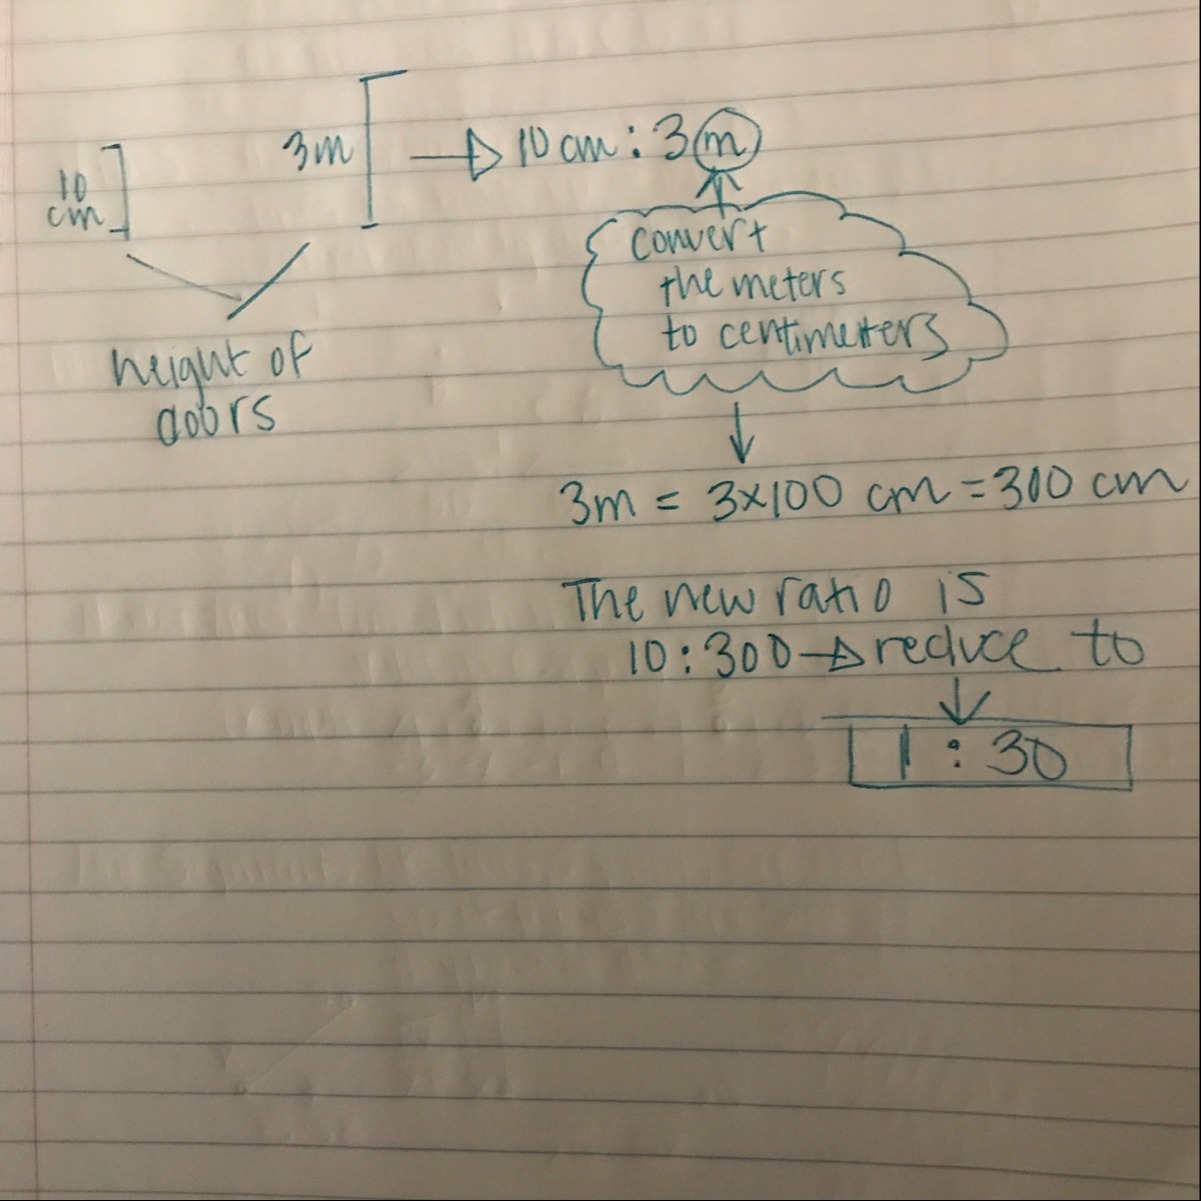 10 cm
3m
10 cm : 3 m
convert
the meters
to centimeters
height of
doors
3m = 3x100 cm = 300 cm
The new ratio is
10 : 300 → reduce to
1 : 30